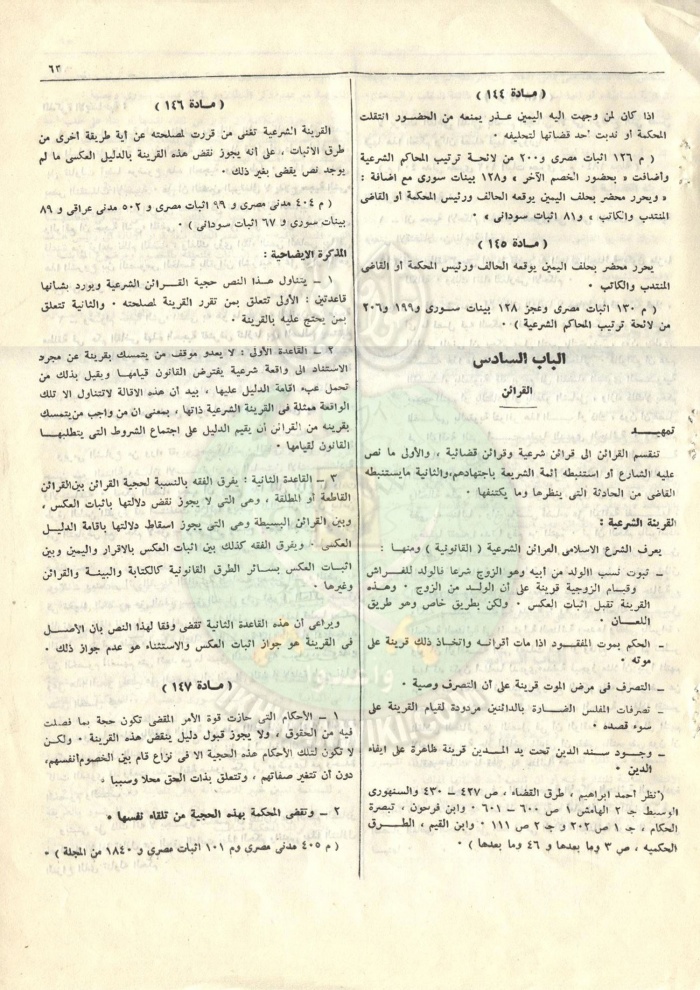 ٦٣
( مـادة ١٤٤ )
اذا كان لمن وجهت اليه اليمين عـذر يمنعه من الحضور انتقلت
المحكمة أو ندبت أحد قضاتها لتحليفه ٠
( م ١٢٦ اثبات مصرى و٢٠٠ من لائحة ترتيب المحاكم الشرعية
وأضافت « بحضور الخصم الآخر » و١٢٨ بينات سورى مع اضافة :
« ويحرر محضر بحلف اليمين يوقعه الحالف ورئيس المحكمة أو القاضى
المنتدب والكاتب » ، و٨١ اثبات سودانى ) ٠
( مـادة ١٤٥ )
يحرر محضر بحلف اليمين يوقعه الحالف ورئيس المحكمة أو القاضى
المنتدب والكاتب ٠
( م ١٣٠ اثبات مصرى وعجز ١٢٨ بينات سـورى و١٩٩ و٢٠٦
من لائحة ترتيب المحاكم الشرعية ) ٠
الباب السادس
القرائن
تمهيـد
تنقسم القرائن الى قرائن شرعية وقرائن قضائية ، والأولى ما نص
عليه الشارع أو استنبطه أئمة الشريعة باجتهادهم،والثانية مايستنبطه
القاضى من الحادثة التى ينظرها وما يكتنفها ٠
القرينة الشرعية :
يعرف الشرع الاسلامى القرائن الشرعية ( القانونية ) ومنها :
ـ ثبوت نسب الولد من أبيه وهو الزوج شرعا فالولد للفـراش
وقيـام الزوجية قرينة على أن الولـد من الزوج ٠ وهـذه
القرينة تقبل اثبات العكس ٠ ولكن بطريق خاص وهو طريق
اللعـان ٠
ـ الحكم بموت المفقـود اذا مات أقرانـه واتخاذ ذلك قرينة على
موته ٠
ـ التصرف فى مرض الموت قرينة على أن التصرف وصية ٠
ـ تصرفات المفلس الضـارة بالدائنين مردودة لقيام القرينة على
سوء قصده ٠
ـ وجـود سند الدين تحت يد المـدين قرينة ظاهرة على ايفاء
الدين ٠
(انظر أحمد ابراهيم ، طرق القضاء ، ص ٤٢٧ ـ ٤٣٠ والسنهورى
الوسيط جـ ٢ الهامش ١ ص ٦٠٠ ـ ٦٠١ ٠ وابن فرحون ، تبصرة
الحكام ، جـ ١ ص ٢٠٢ و جـ ٢ ص ١١١ ٠ وابن القيم ، الطـرق
الحكميه ، ص ٣ وما بعدها و ٤٦ وما بعدها ) ٠
( مـادة ١٤٦ )
القرينة الشرعية تغنى من قررت لمصلحته عن أية طريقة أخرى من
طرق الاثبات ، على أنه يجوز نقض هذه القرينة بالدليل العكسى ما لم
يوجد نص يقضى بغير ذلك ٠
( م ٤٠٤ مدنى مصرى و ٩٩ اثبات مصرى و ٥٠٢ مدنى عراقى و ٨٩
بينات سورى و ٦٧ اثبات سودانى ) ٠
المذكرة الايضاحية :
١ ـ يتناول هـذا النص حجية القـرائن الشرعية ويورد بشانها
قاعدتين : الأولى تتعلق بمن تقرر القرينة لمصلحته ٠ والثانية تتعلق
بمن يحتج عليه بالقرينة ٠
٢ ـ القاعدة الأولى : لا يعدو موقف من يتمسك بقرينة عن مجرد
الاستناد الى واقعة شرعية يفترض القانون قيامها ويقيل بذلك من
تحمل عبء اقامة الدليل عليها ، بيد أن هذه الاقالة لاتتناول الا تلك
الواقعة ممثلة فى القرينة الشرعية ذاتها ، بمعنى ان من واجب من يتمسك
بقرينه من القرائن أن يقيم الدليل على اجتماع الشروط التى يتطلبهـا
القانون لقيامها ٠
٣ ـ القاعدة الثانية : يفرق الفقه بالنسبة لحجية القرائن بين القرائن
القاطعة أو المطلقة ، وهى التى لا يجوز نقض دلالتها باثبات العكس ،
وبين القرائن البسيطة وهى التى يجوز اسقاط دلالتها باقامة الدليـل
العكسى ٠ ويفرق الفقه كذلك بين اثبات العكس بالاقرار واليمين وبين
اثبـات العكس بسـائر الطرق القانونية كالكتابة والبينة والقرائن
وغيرها ٠
ويراعى أن هذه القاعدة الثانية تقضى وفقا لهذا النص بأن الأصـل
فى القرينة هو جواز اثبات العكس والاستثناء هو عدم جواز ذلك ٠
( مـادة ١٤٧ )
١ ـ الأحكام التى حازت قوة الأمر المقضى تكون حجة بما فصلت
فيه من الحقوق ، ولا يجوز قبول دليل ينقض هذه القرينة ٠ ولكـن
لا تكون لتلك الأحكام هذه الحجية الا فى نزاع قام بين الخصوم أنفسهم،
دون أن تتغير صفاتهم ، وتتعلق بذات الحق محلا وسببا ٠
٢ ـ وتقضى المحكمة بهذه الحجية من تلقاء نفسها ٠
( م ٤٠٥ مدنى مصرى وم ١٠١ اثبات مصرى و ١٨٤٠ من المجلة ) ٠